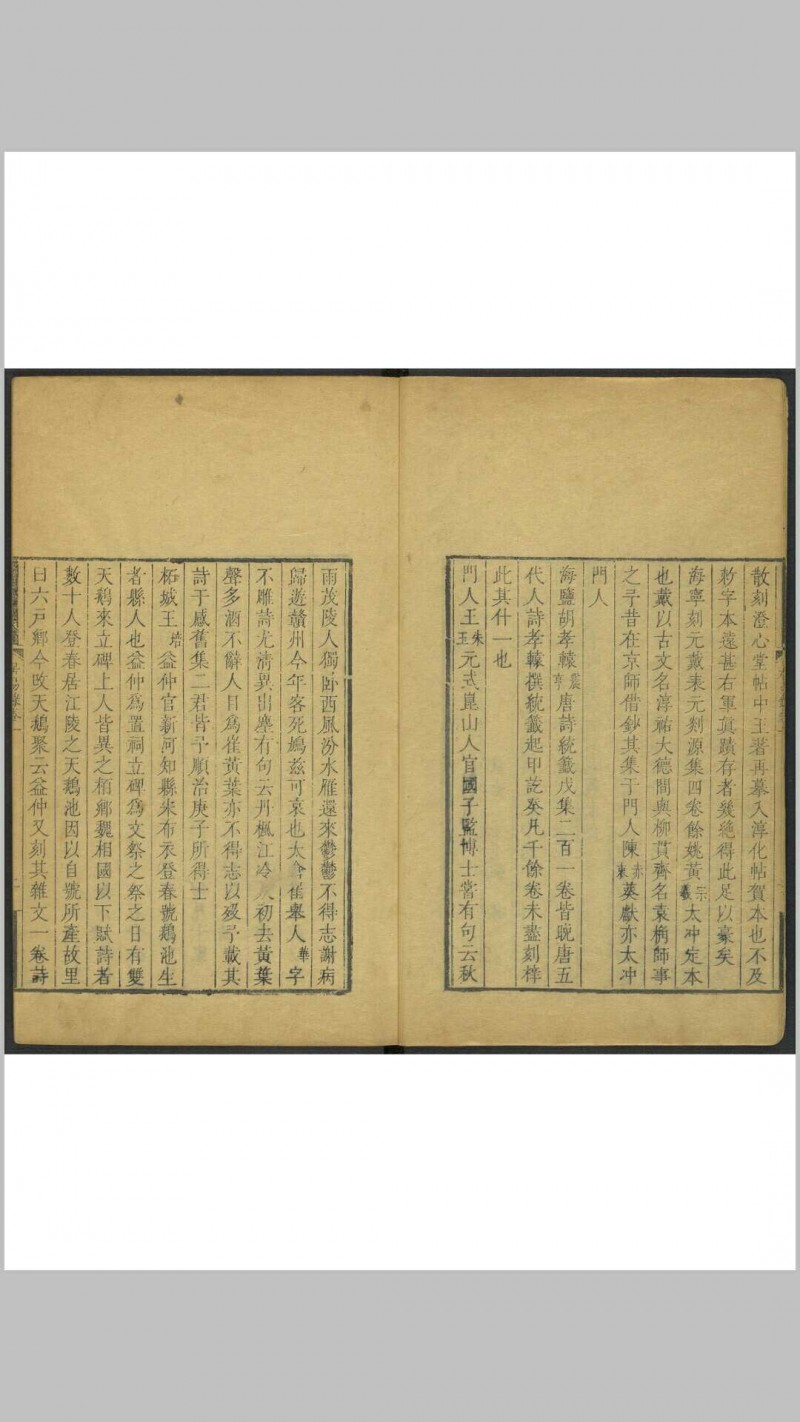 散刻澄心堂帖中王著再摹入淳化帖賀本也不及
勑字本遠甚右軍真蹟存者幾絶得此足以豪矣
海寧刻元戴表元剡源集四卷餘姚黄宗羲太冲定本
也戴以古文名淳祐大德間與柳貫齊名袁桷師事
之予昔在京師借鈔其集于門人陳赤衷英獻亦太冲
門人
海鹽胡孝轅震亨唐詩統籤戊集二百一卷皆晚唐五
代人詩孝轅撰統籤起甲訖癸凡千餘卷未盡刻梓
此其什一也
門人王朱玉元式崑山人官國子監博士嘗有句云秋
雨茂陵人獨卧西風汾水雁還來鬱鬱不得志謝病
歸遊贛州今年客死鳩兹可哀也太倉崔舉人華字
不雕詩尤清異出塵有句云丹楓江冷人初去黄葉
聲多酒不辭人目爲崔黄葉亦不得志以歿予載其
詩于感舊集二君皆予順治庚子所得士
柘城王培益仲官新河知縣宋布衣登春號鵝池生
者縣人也益仲爲置祠立碑爲文祭之祭之日有雙
天鵝來立碑上人皆異之栢鄉魏相國以下賦詩者
數十人登春居江陵之天鵝池因以自號所產故里
曰六户鄉今改天鵝聚云益仲又刻其雜文一卷詩